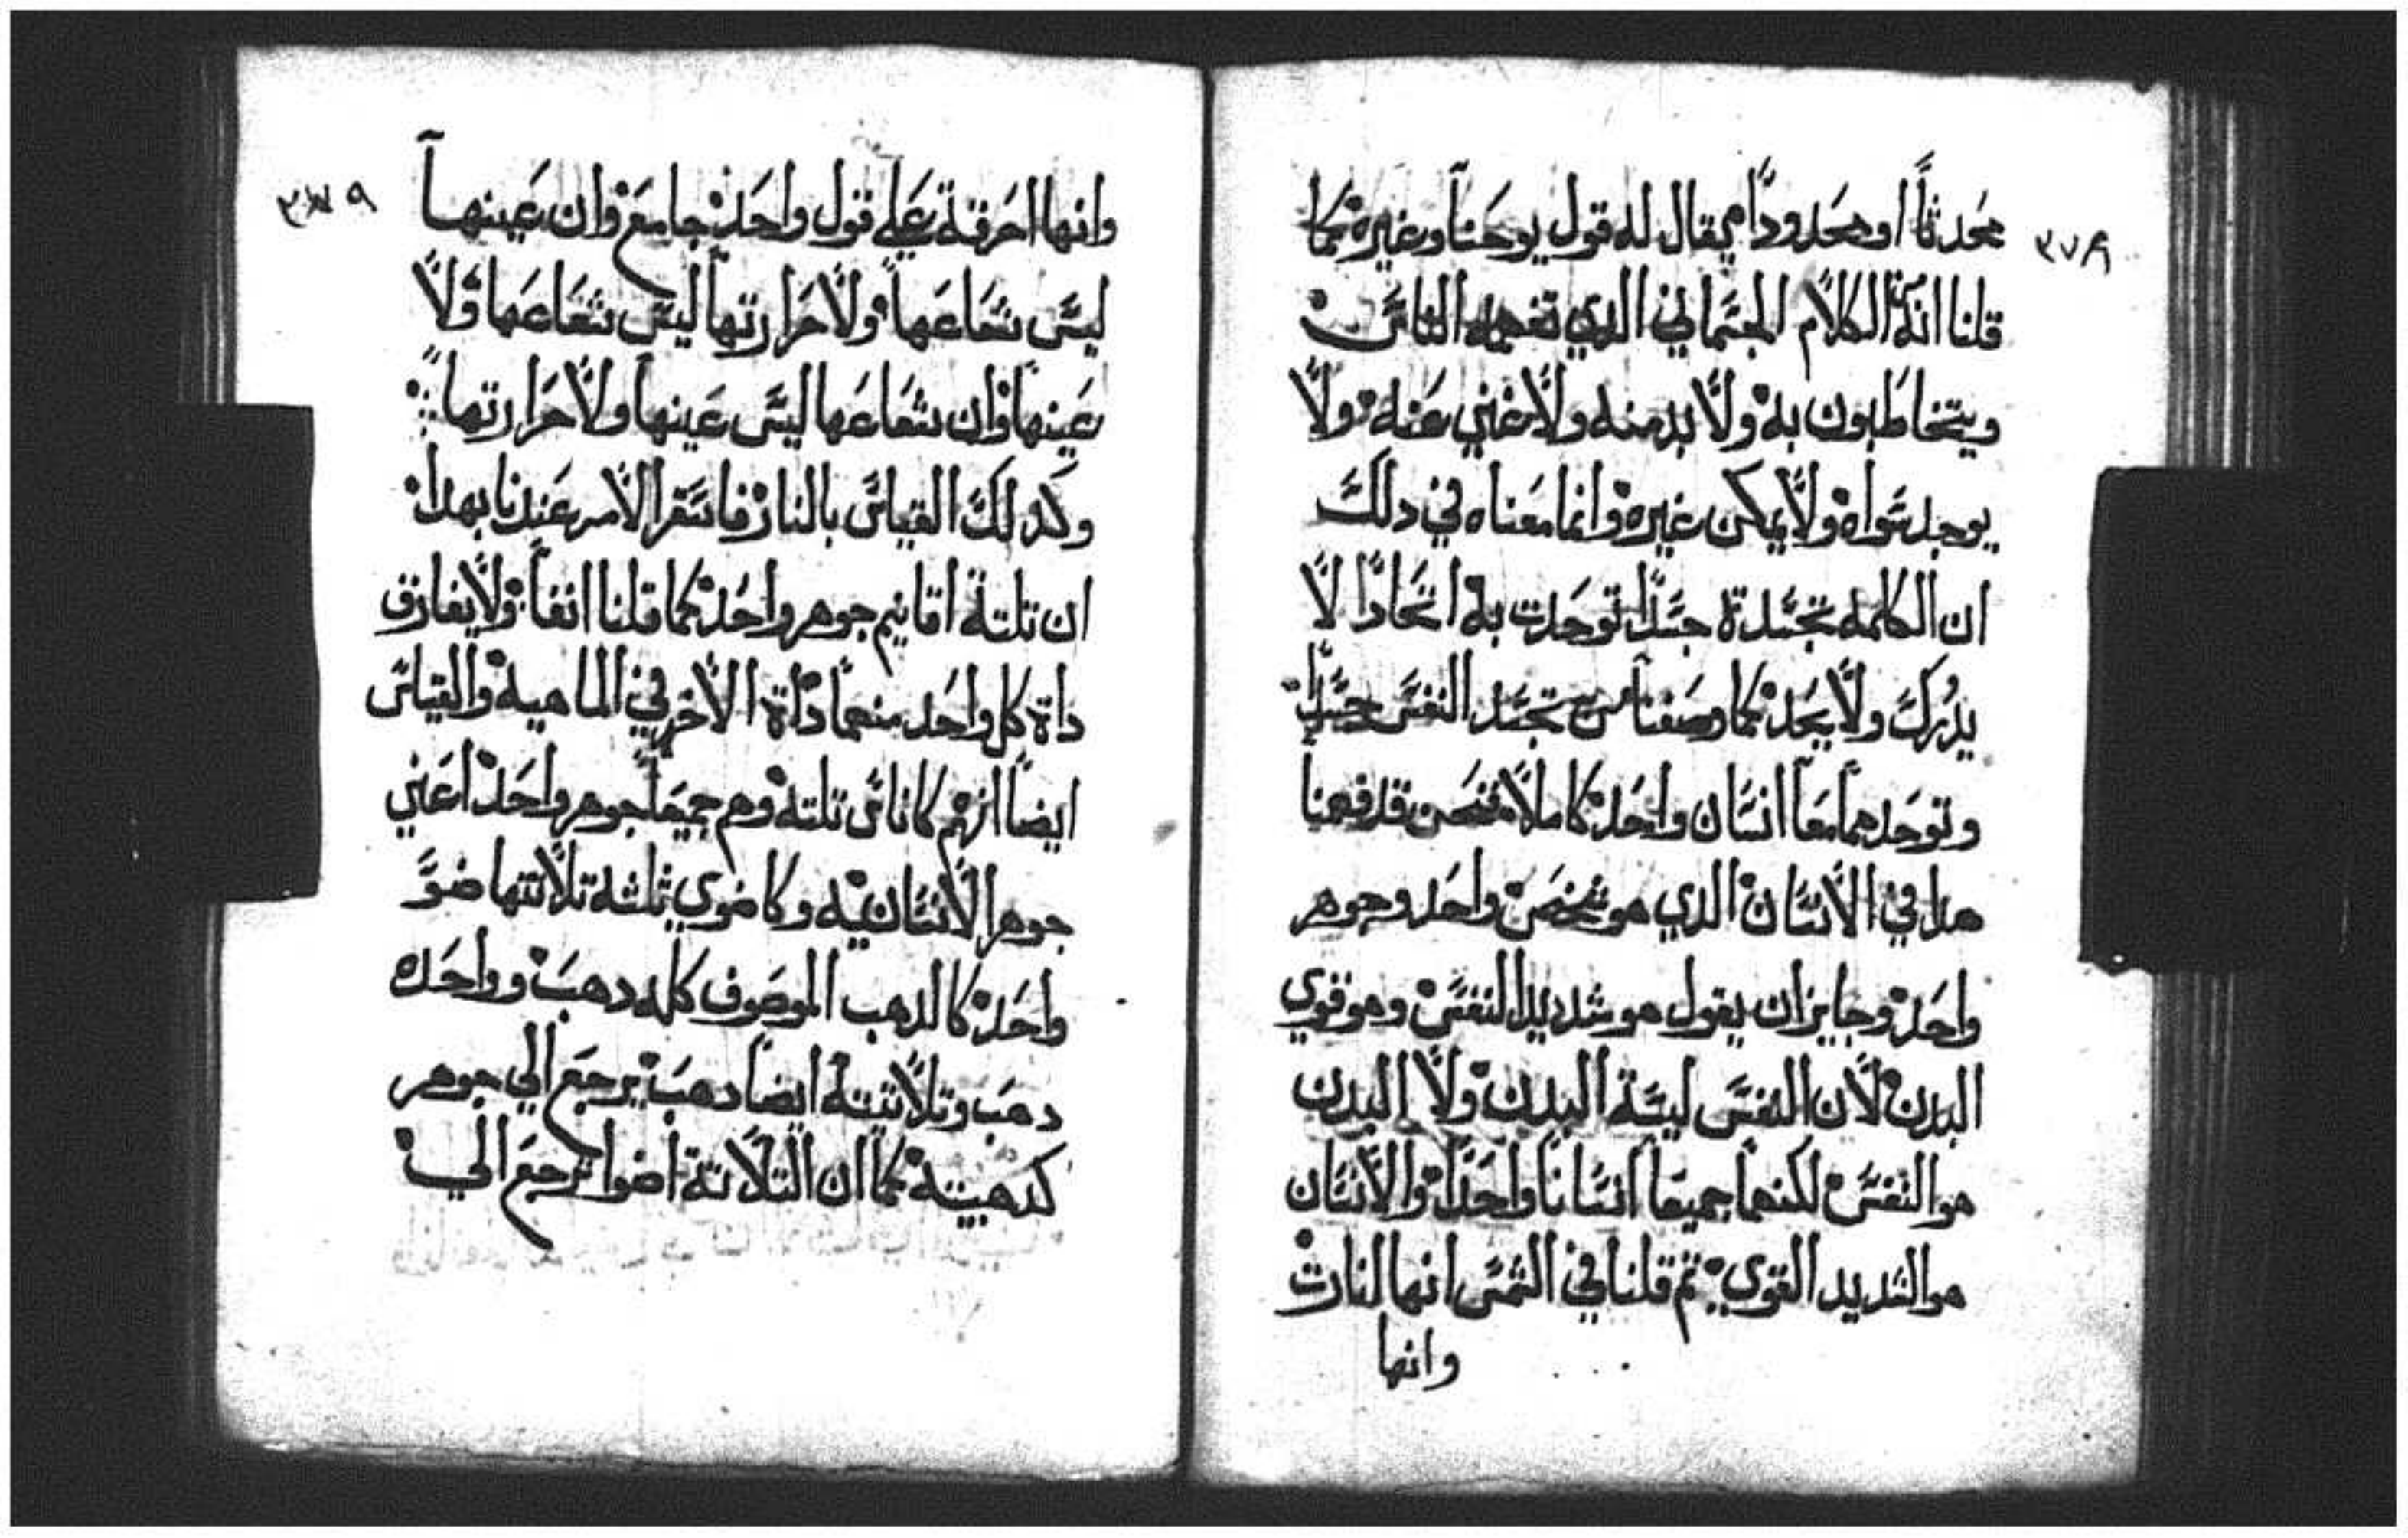 ٣٧٨
محَدثاً او محَدوداً يقال له قول يوحَنا وغيره كما
قلنا انه الكلام الجسَماني الذي تفهمه الناسَ
ويتخاطَبون به ولا بد منه ولا غني عَنه ولا
يوجد سَواه ولا يمكن غيره وانما معَناه في دلك
ان الكلمه تجسَدة جسَداً توحَدت به اتحَاداً لا
يدُرك ولا يحَد كما وصَفنا من تجسَد النفسَ جسَداً
وتوحَدهما معَاً انسَان واحَد كاملاً فنحَن قد فهمنا
هدا في الانسَان الذي هو شخصَ واحَد وجوهر
واحَد وجايز ان يقول هو شديد النفسَ وهو قوي
البدن لان النفسَ ليسَة البدن ولا البدن
هو النفسَ لكنهما جميعَاً انسَاناً واحَداً والانسَان
هو الشديد القوي تم قلنا في الشمسَ انها انارت
وانها
٣٧٩
وانها احَرقة عَلي قول واحَد جامعَ وان عَينها
ليسَ شعَاعَها ولا حَرارتها ليسَ شعَاعَها ولا
عَينها وان شعَاعَها ليسَ عَينها ولا حَرارتها
وكدلك القياسَ بالنار فاستَقر الامر عَندنا بهدا
ان تلتة اقانيم جوهر واحَد كما قلنا انفاً ولا يفارق
داة كل واحَد منهما داة الاخر في الماهيه والقياسَ
ايضاً انهم كاناسَ تلته وهم جميعَاً جوهر واحَد اعَني
جوهر الانسَانيه وكاضوي ثلثه تلاتتها ضوَ
واحَد كالدهب الموصَوف كله دهبَ وواحَده
دهبَ وتلاتيته ايضاً دهبَ يرجعَ الي جوهر
كدهبيته كما ان التلاتة اضوا ترجعَ الي